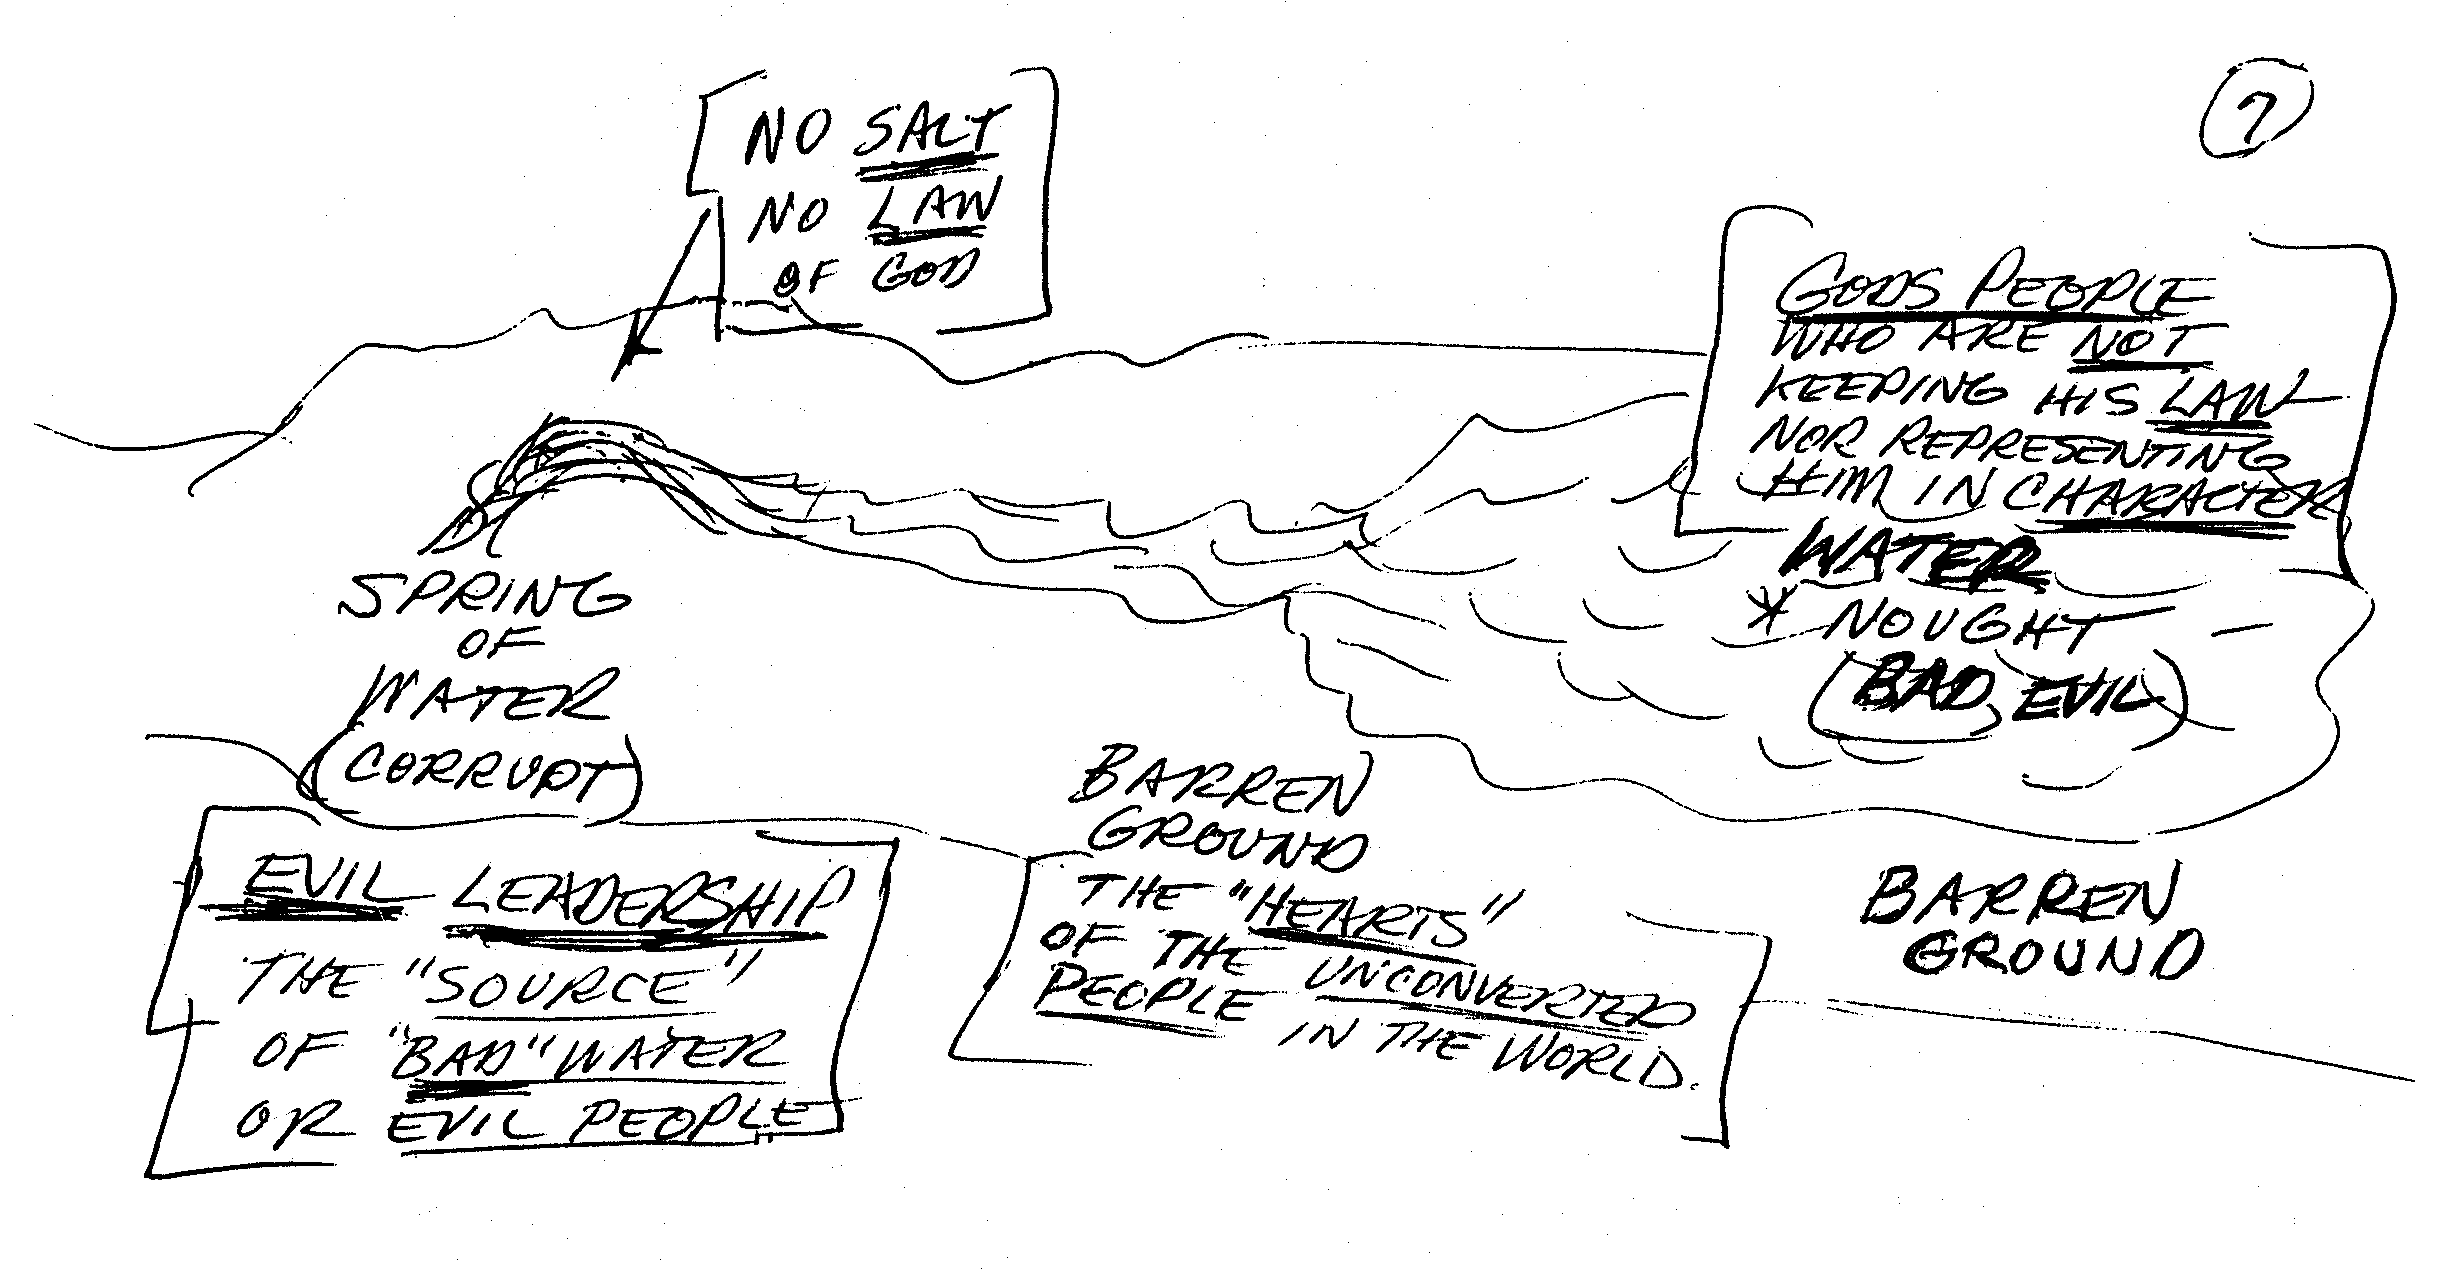 7
NO SALT
NO LAW
OF GOD
GODS PEOPLE
WHO ARE NOT
KEEPING HIS LAW
NOR REPRESENTING
HIM IN CHARACTER
WATER
* NOUGHT
(BAD, EVIL)
SPRING
OF
WATER
(CORRUPT)
EVIL LEADERSHIP
THE "SOURCE"
OF "BAD" WATER
OR EVIL PEOPLE
BARREN
GROUND
THE "HEARTS"
OF THE UNCONVERTED
PEOPLE IN THE WORLD.
BARREN
GROUND